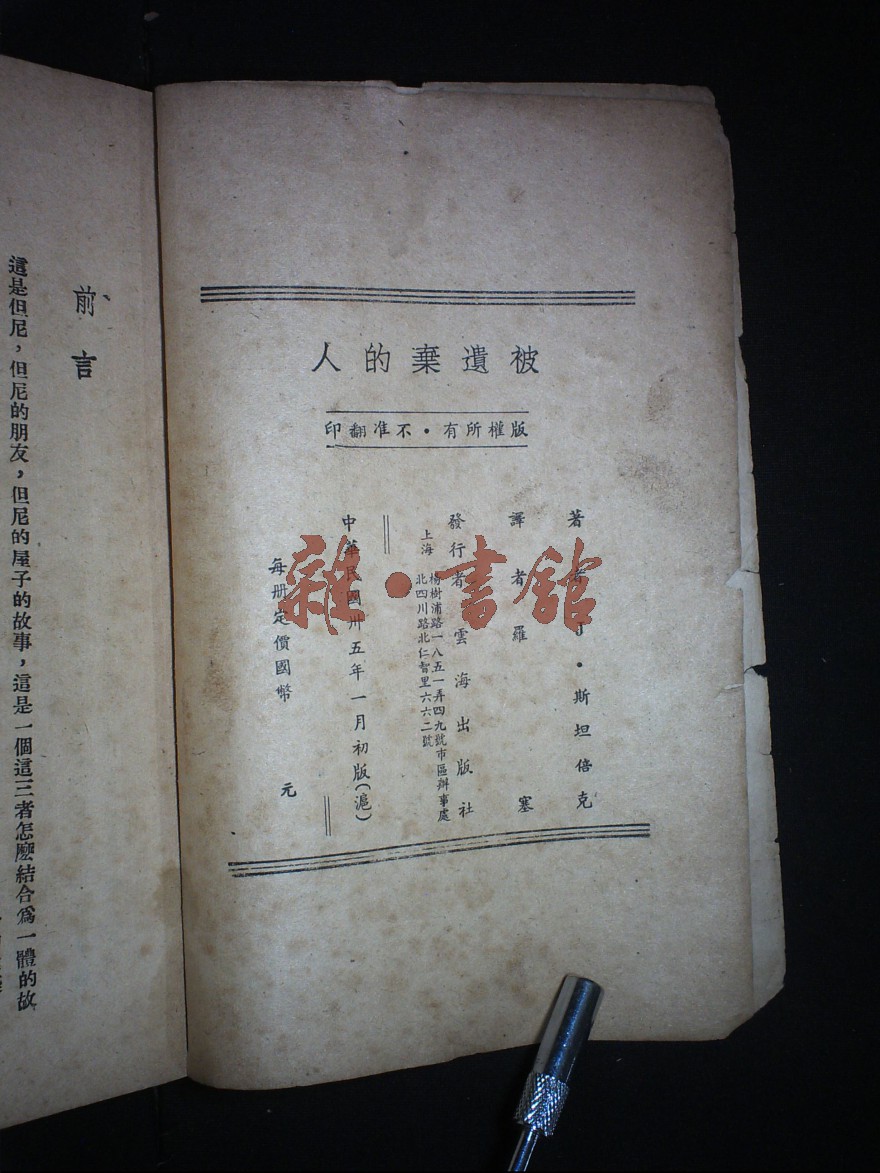 被遺棄的人
版權所有・不准翻印
著者 J・斯坦倍克
譯者 羅塞
發行者 雲海出版社
上海
楊樹浦路一八五一弄四九號市區辦事處
北四川路北仁智里六六二號
中華民國卅五年一月初版(滬)
每册定價國幣 元
雜・書館
前言
這是但尼，但尼的朋友，但尼的屋子的故事，這是一個這三者怎麼結合爲一體的故